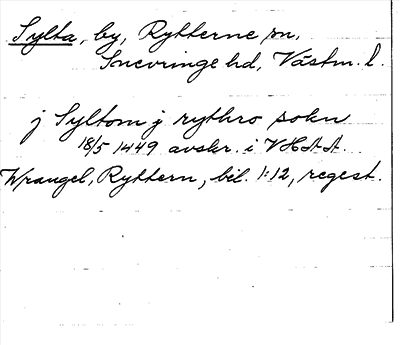 Sylta, by, Rytterne sn,
Snevringe hd, Västm. l.
j Syltom j rythro sokn
18/5 1449 avskr. i VHAA
Wrangel, Ryttern, bil. 1:12, regest.